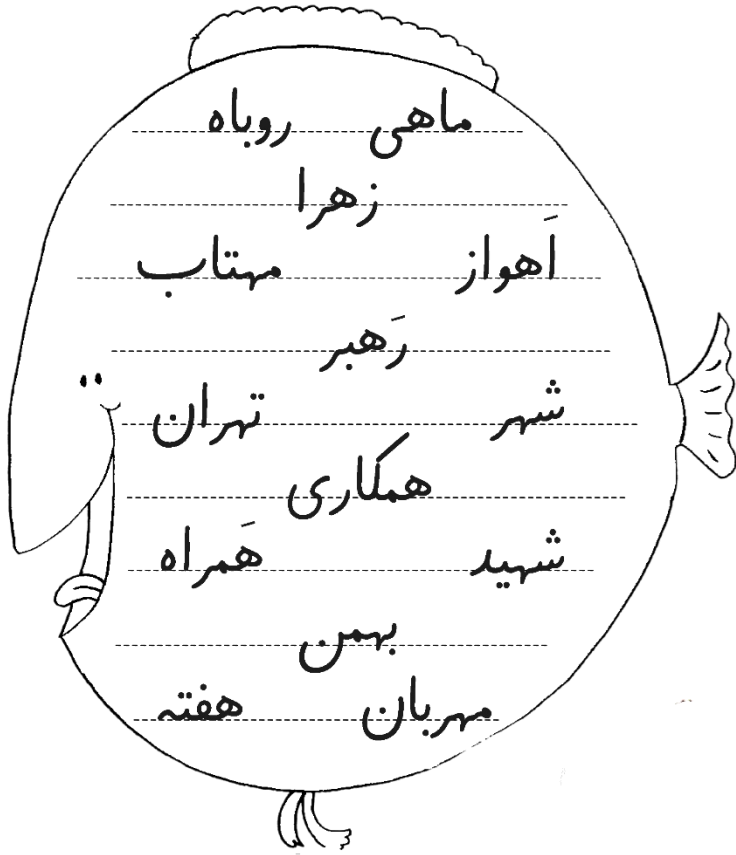 ماهی روباه
زهرا
اَهواز مهتاب
رَهبر
شهر تهران
همکاری
شهید هَمراه
بهمن
مهربان هفته